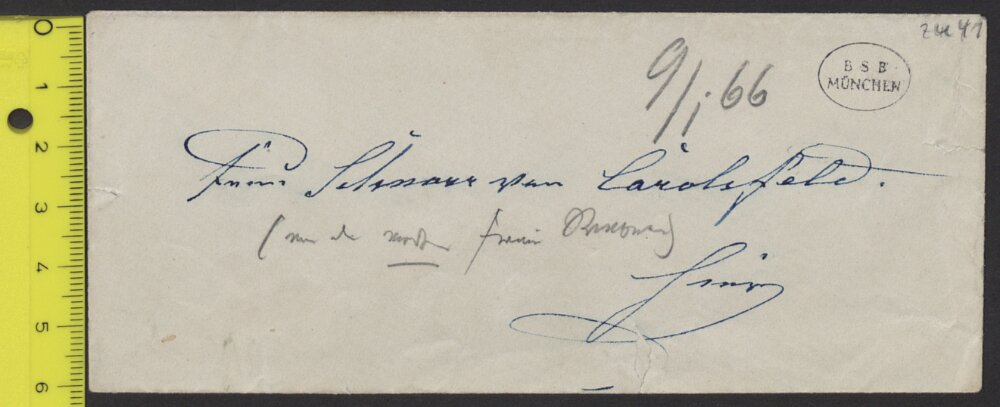 zu 41
9/i 66
B S B
MÜNCHEN
Frau Schnorr von Carolsfeld.
( Frau )
hier
0
1
2
3
4
5
6